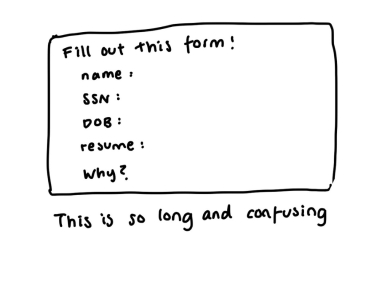 Fill out this form!
name:
SSN:
DOB:
resume:
Why?
This is so long and confusing